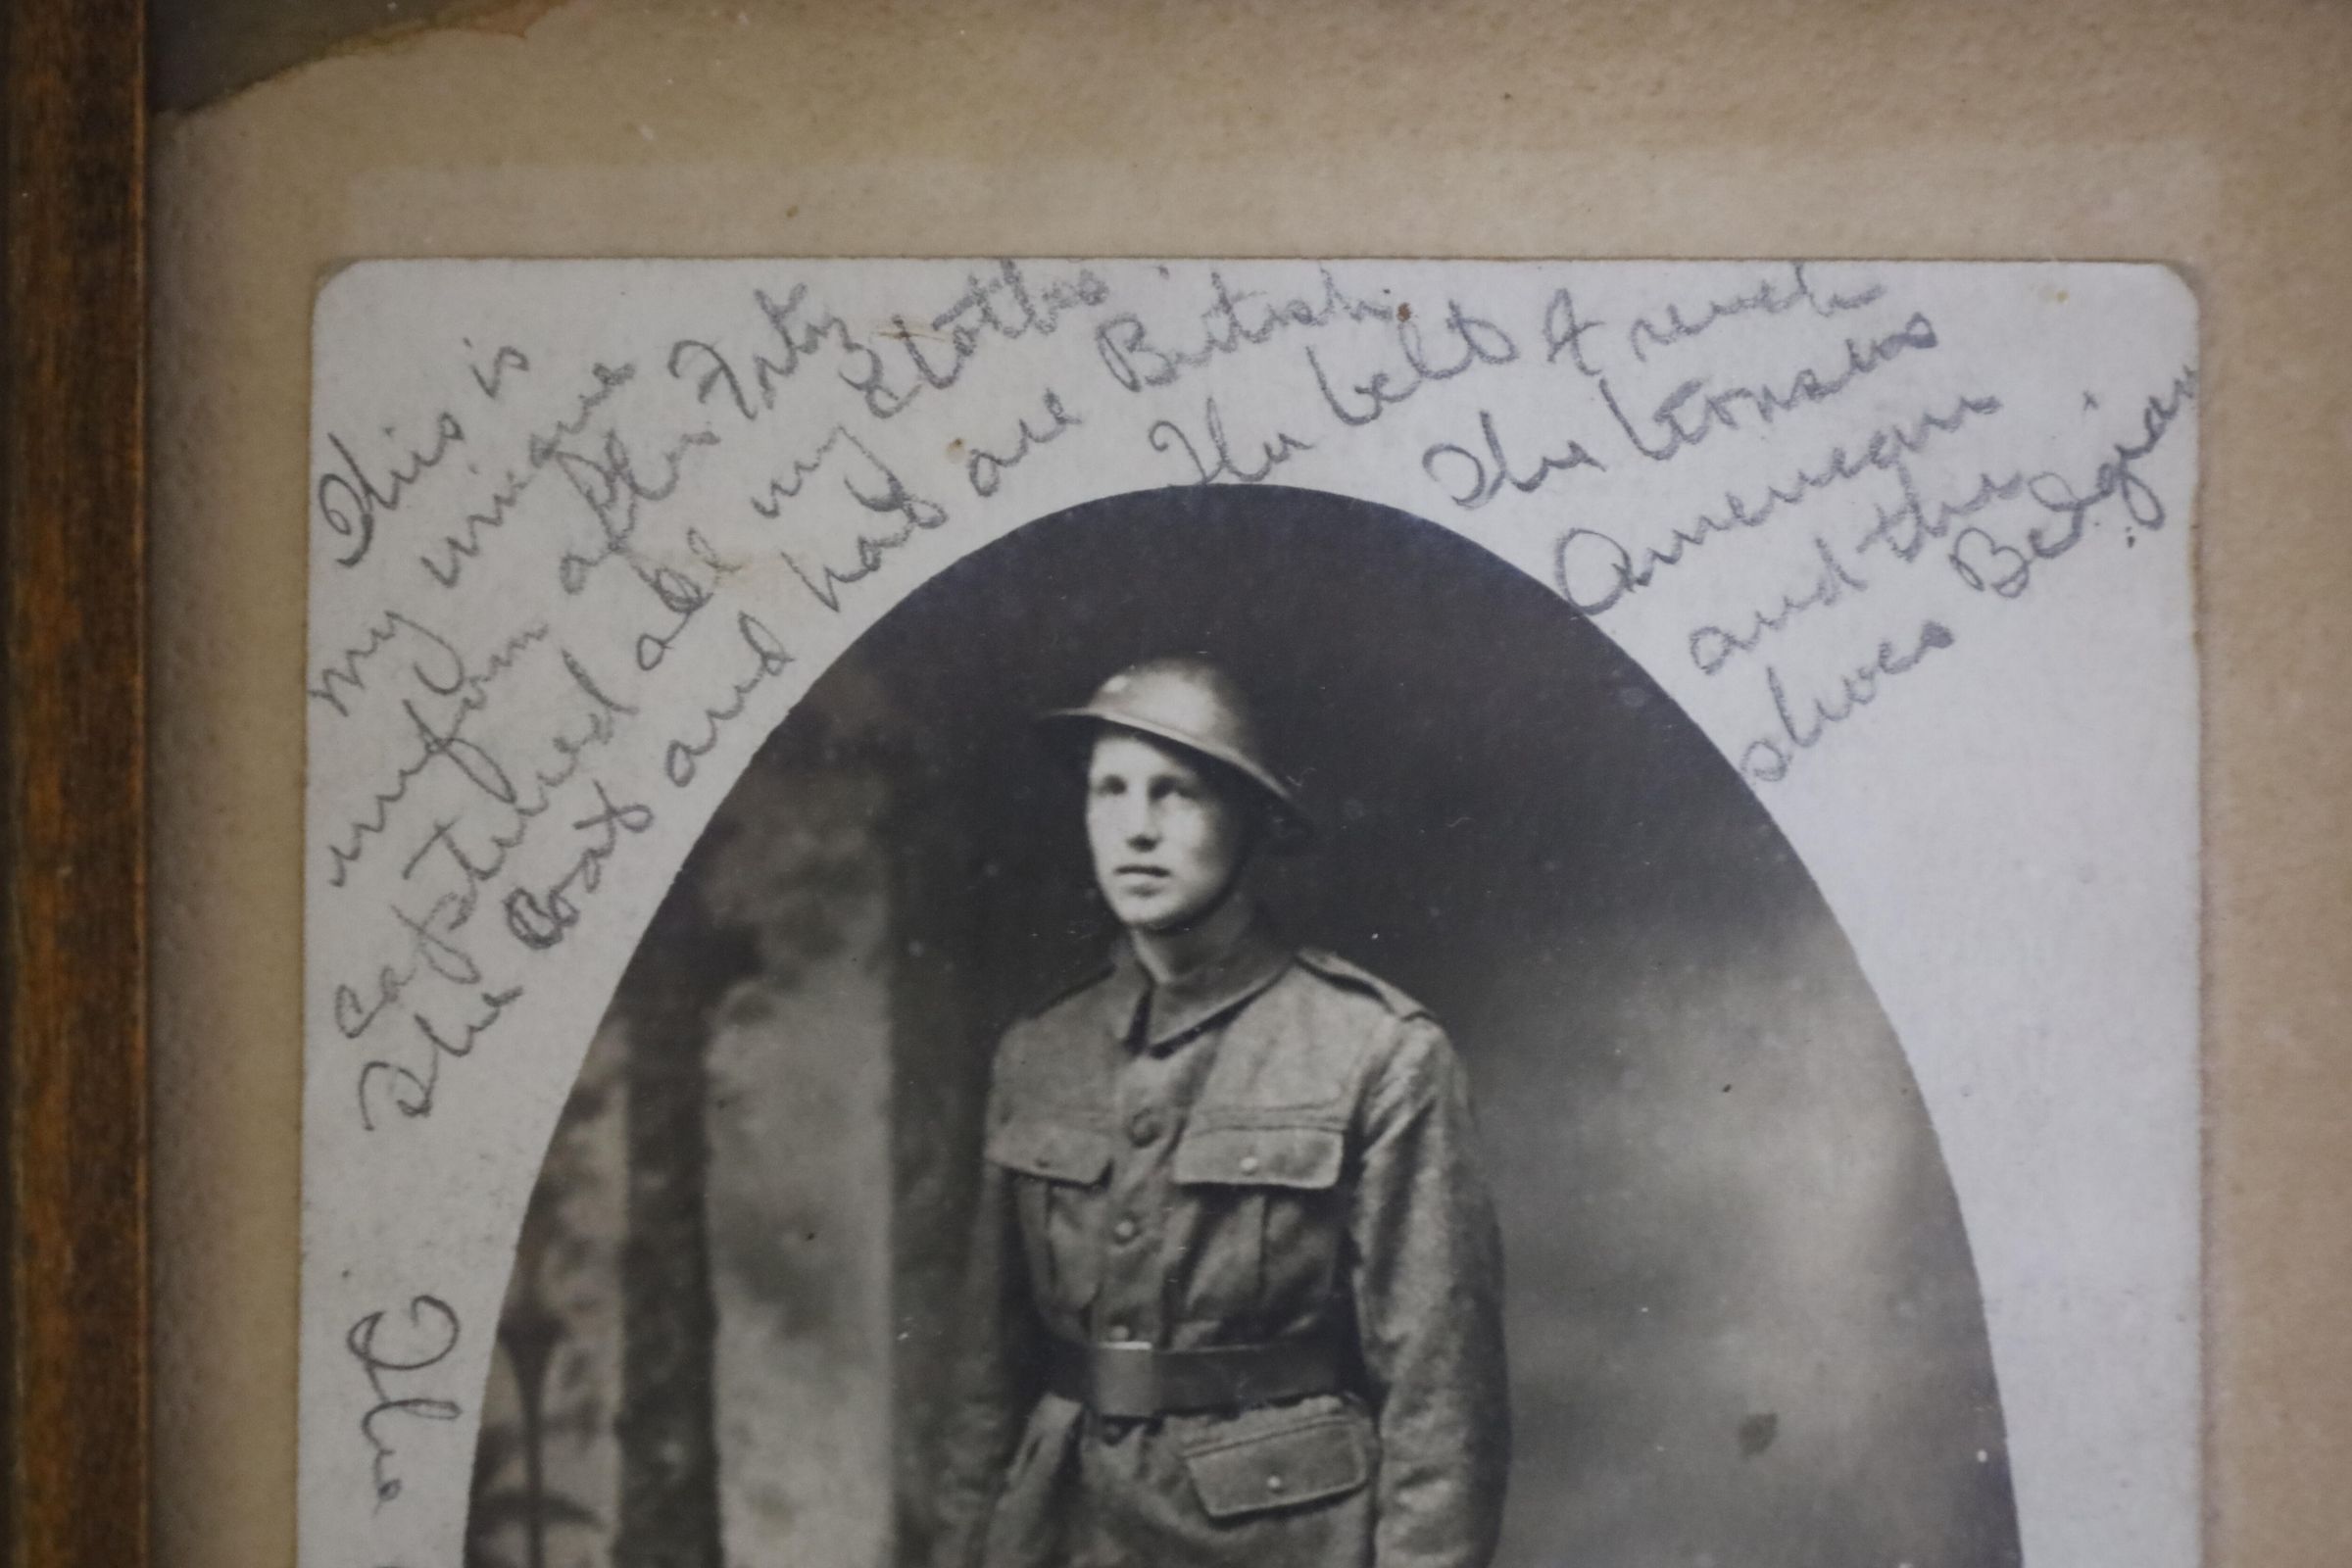 This is
my unique
uniform after Fritz
captured all my clothes.
The coat and hat are British.
The belt French
The trousers
American
and the
shoes Belgian.
The